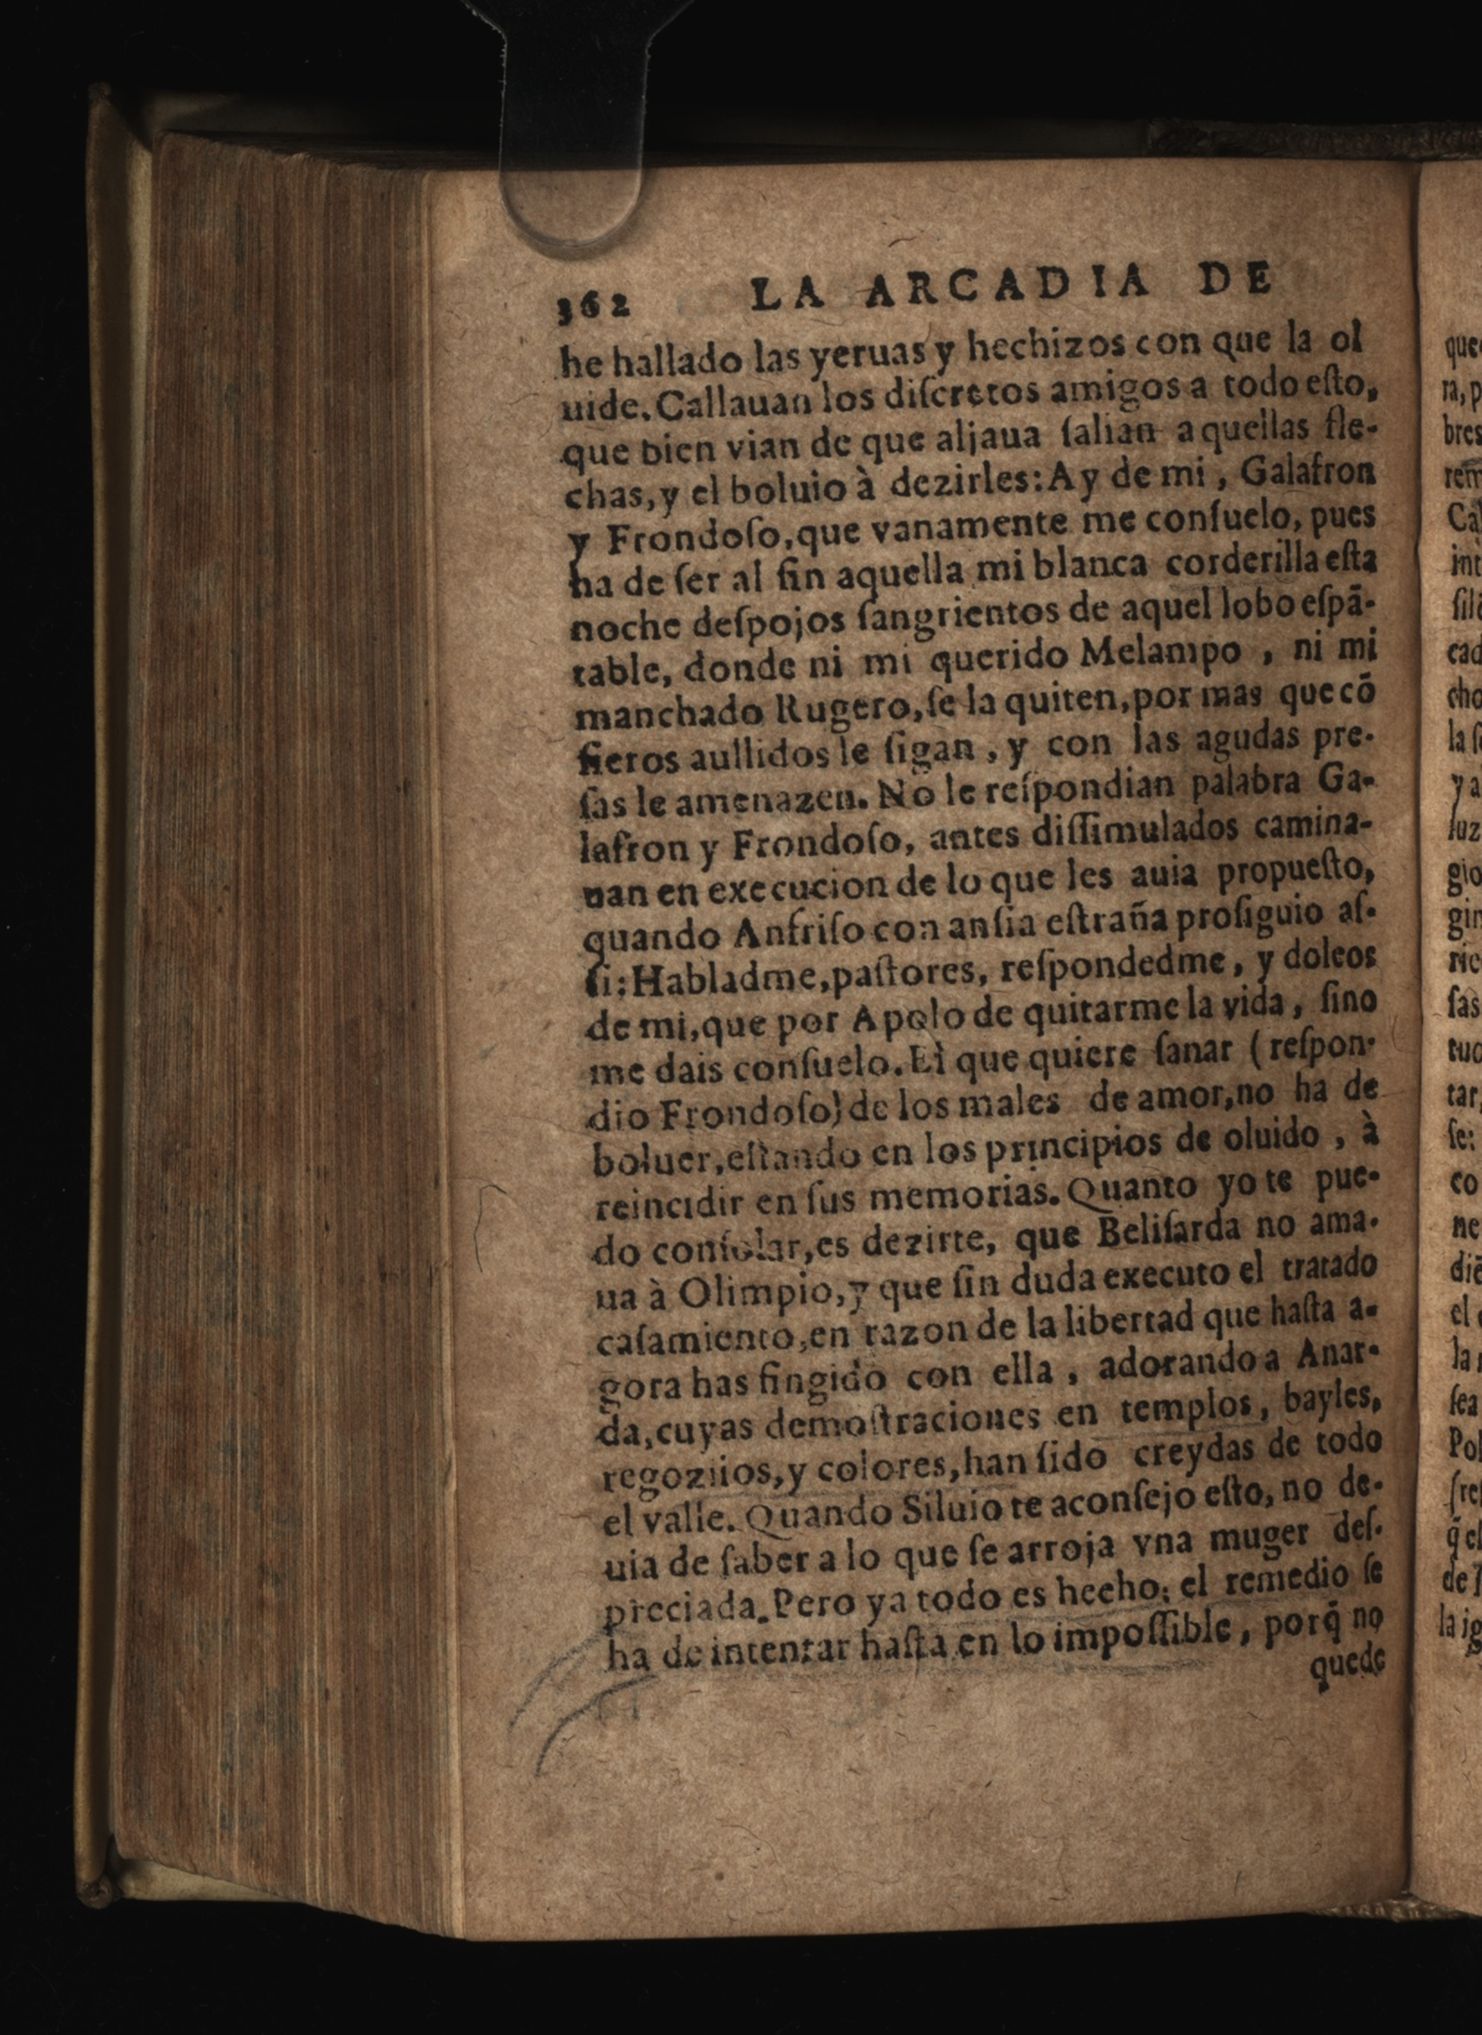 362 LA ARCADIA DE
he hallado las yeruas y hechizos con que la ol
uide. Callauan los diſcretos amigos a todo eſto,
que bien vian de que aljaua ſalian aquellas fle-
chas, y el boluio à dezirles: Ay de mi, Galafron
y Frondoſo, que vanamente me conſuelo, pues
ha de ſer al fin aquella mi blanca corderilla eſta
noche deſpojos ſangrientos de aquel lobo eſpã-
table, donde ni mi querido Melampo, ni mi
manchado Rugero, ſe la quiten, por mas que cõ
fieros aullidos le ſigan, y con las agudas pre-
ſas le amenazen. No le reſpondian palabra Ga-
lafron y Frondoſo, antes diſſimulados camina-
uan en execucion de lo que les auia propueſto,
quando Anfriſo con anſia eſtraña proſiguio aſ-
ſi: Habladme, paſtores, reſpondedme, y doleos
de mi, que por Apolo de quitarme la vida, ſino
me dais conſuelo. El que quiere ſanar (reſpon-
dio Frondoſo) de los males de amor, no ha de
boluer, eſtando en los principios de oluido, à
reincidir en ſus memorias. Quanto yo te pue-
do conſolar, es dezirte, que Beliſarda no ama-
ua à Olimpio, y que ſin duda executo el tratado
caſamiento, en razon de la libertad que haſta a-
gora has fingido con ella, adorando a Anar-
da, cuyas demoſtraciones en templos, bayles,
regozijos, y colores, han ſido creydas de todo
el valle. Quando Siluio te aconſejo eſto, no de-
uia de ſaber a lo que ſe arroja vna muger deſ-
preciada. Pero ya todo es hecho; el remedio ſe
ha de intentar haſta en lo impoſſible, porq̃ no
quede